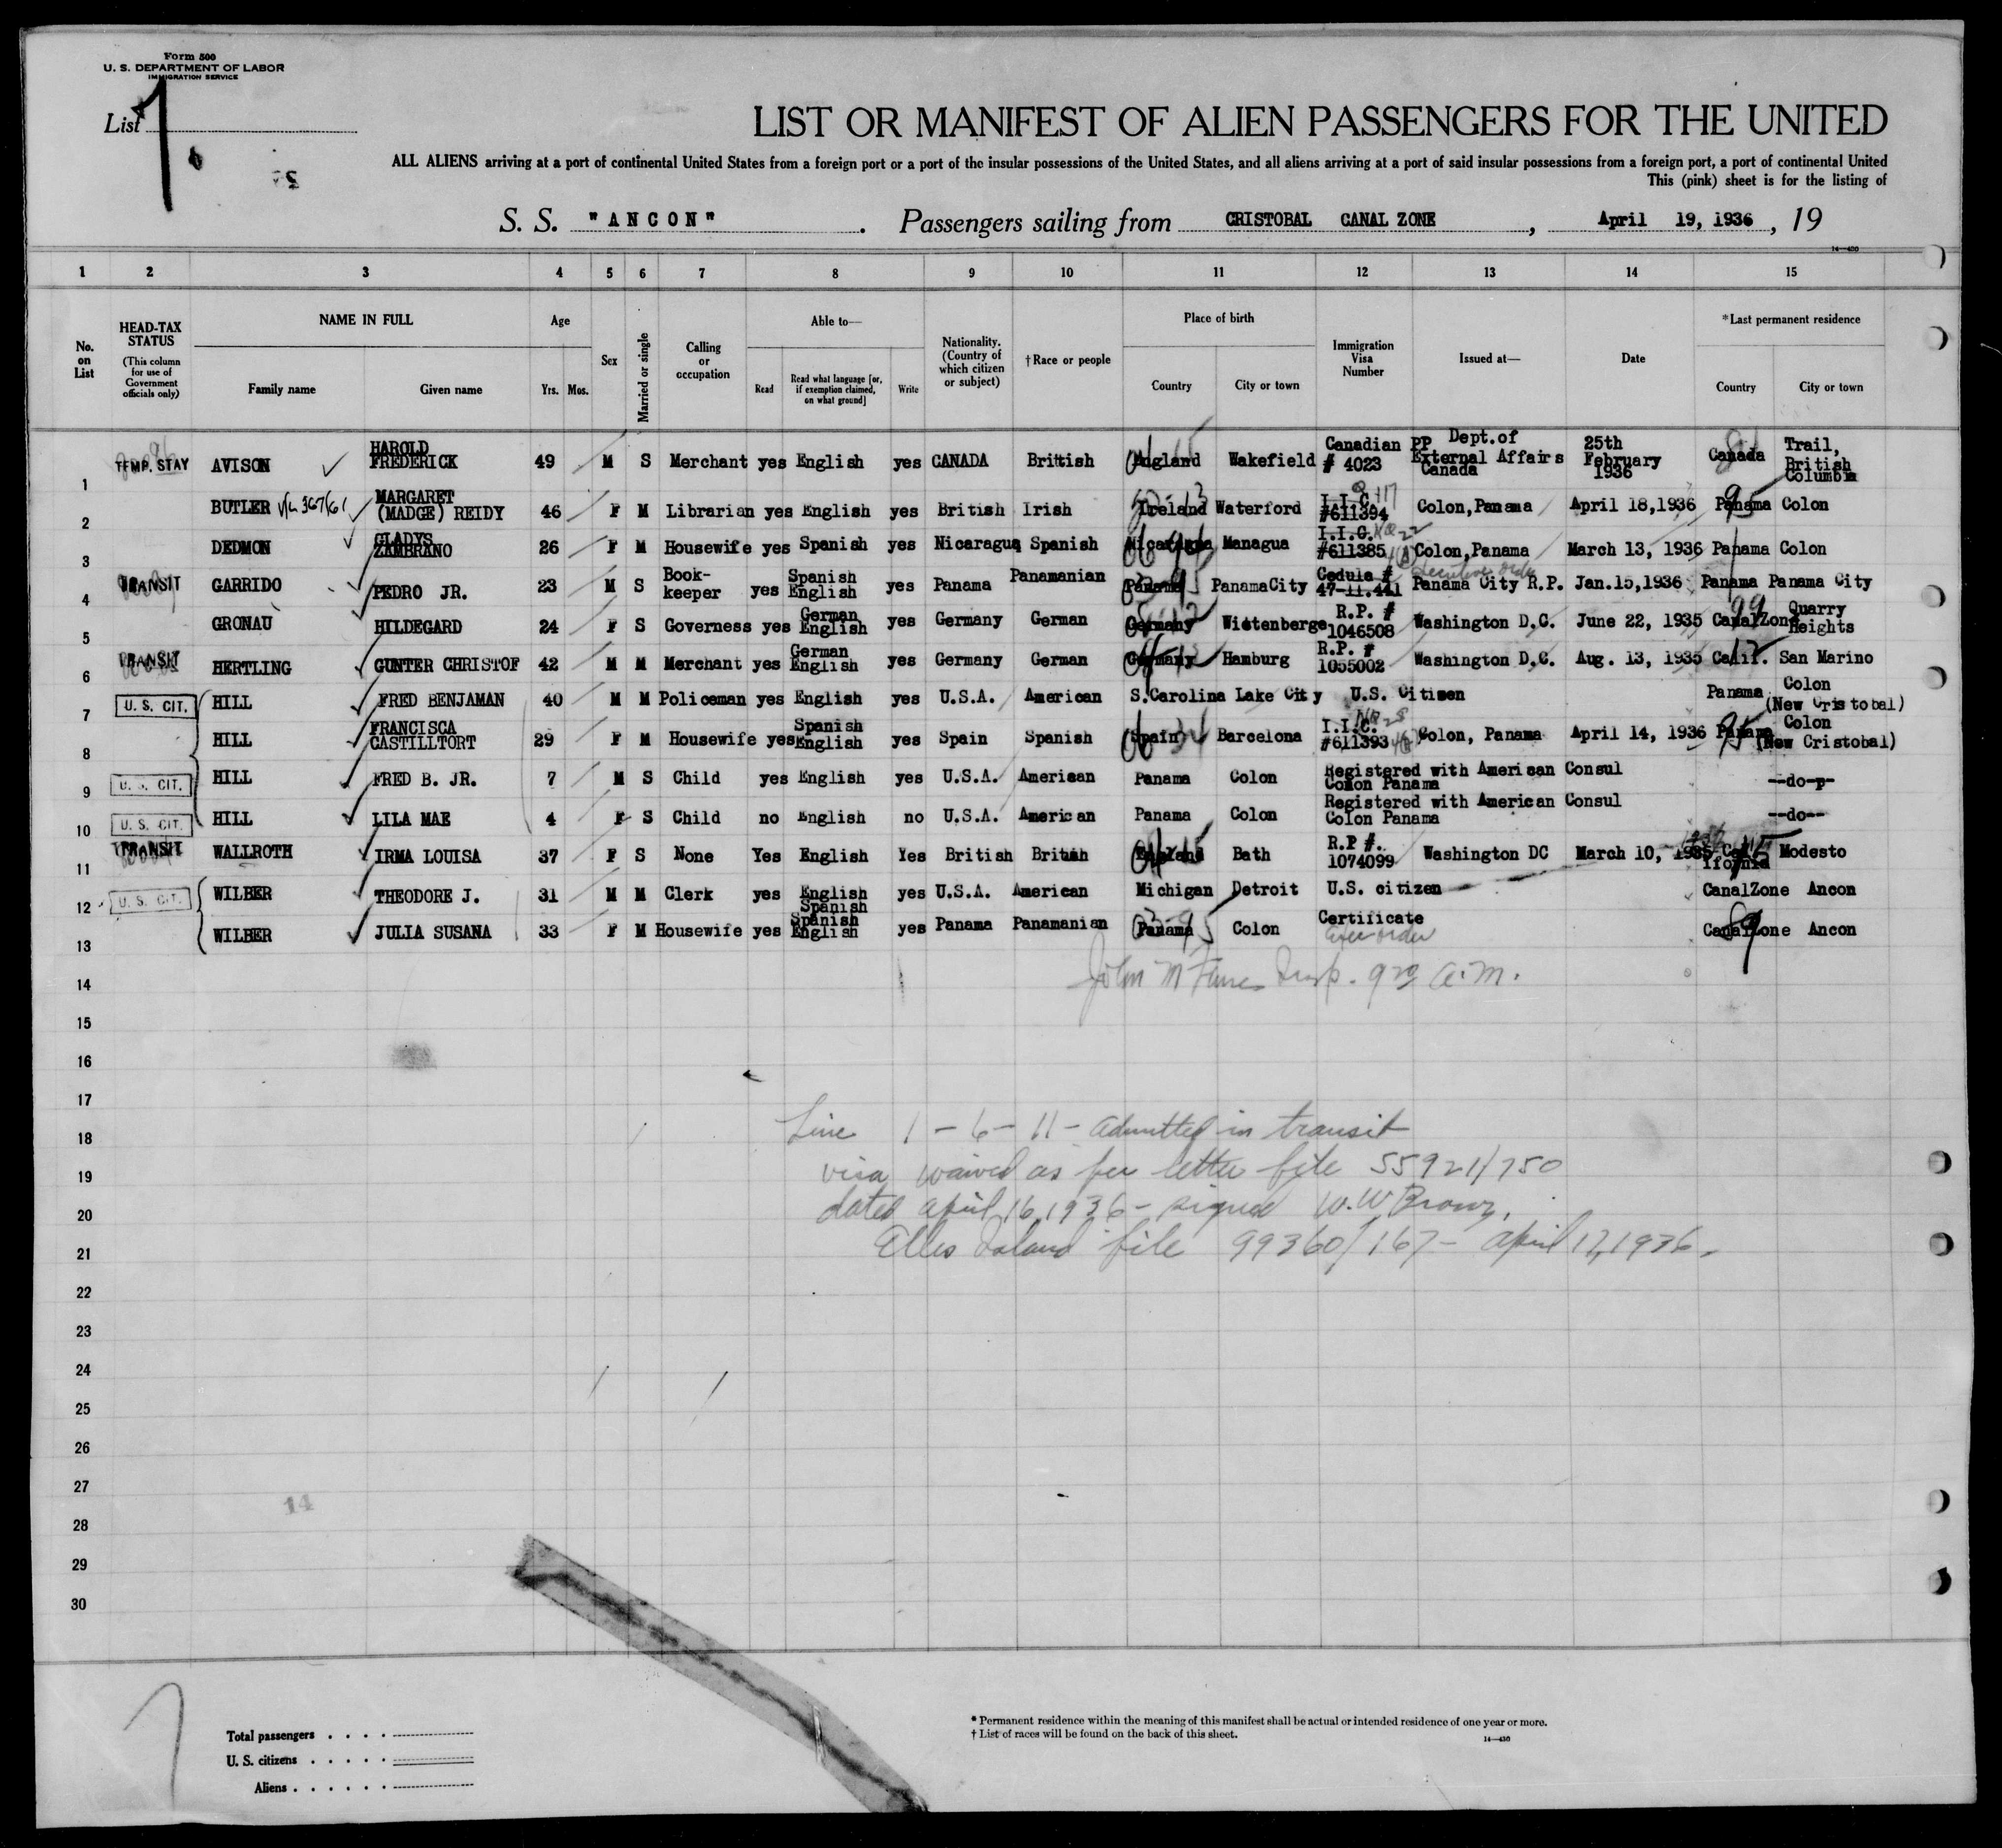 Form 500
U. S. DEPARTMENT OF LABOR
IMMIGRATION SERVICE
List 7
LIST OR MANIFEST OF ALIEN PASSENGERS FOR THE UNITED
ALL ALIENS arriving at a port of continental United States from a foreign port or a port of the insular possessions of the United States, and all aliens arriving at a port of said insular possessions from a foreign port, a port of continental United
This (pink) sheet is for the listing of
S. S. "ANCON". Passengers sailing from CRISTOBAL CANAL ZONE, April 19, 1936, 19
14—430
1 2 3 4 5 6 7 8 9 10 11 12 13 14 15
No. on List
HEAD-TAX STATUS (This column for use of Government officials only)
NAME IN FULL
Family name
Given name
Age
Yrs. Mos.
Sex
Married or single
Calling or occupation
Able to—
Read
Read what language [or, if exemption claimed, on what ground]
Write
Nationality. (Country of which citizen or subject)
†Race or people
Place of birth
Country
City or town
Immigration Visa Number
Issued at—
Date
*Last permanent residence
Country
City or town
1 TEMP. STAY AVISON HAROLD FREDERICK 49 M S Merchant yes English yes CANADA British England Wakefield Canadian PP # 4023 Dept. of External Affairs Canada 25th February 1936 Canada Trail, British Columbia
2 BUTLER MARGARET (MADGE) REIDY 46 F M Librarian yes English yes British Irish Ireland Waterford I.I.C. #611394 Colon, Panama April 18, 1936 Panama Colon
3 DEDMON GLADYS ZAMBRANO 26 F M Housewife yes Spanish yes Nicaragua Spanish Nicaragua Managua I.I.C. #611385 Colon, Panama March 13, 1936 Panama Colon
4 TRANSIT GARRIDO PEDRO JR. 23 M S Book-keeper yes Spanish English yes Panama Panamanian Panama PanamaCity Cedula # 47-11.441 Executive order Panama City R.P. Jan. 15, 1936 Panama Panama City
5 GRONAU HILDEGARD 24 F S Governess yes German English yes Germany German Germany Wittenberge R.P. # 1046508 Washington D.C. June 22, 1935 CanalZone Quarry Heights
6 TRANSIT HERTLING GUNTER CHRISTOF 42 M M Merchant yes German English yes Germany German Germany Hamburg R.P. # 1055002 Washington D.C. Aug. 13, 1935 Calif. San Marino
7 U. S. CIT. HILL FRED BENJAMAN 40 M M Policeman yes English yes U.S.A. American S.Carolina Lake City U.S. Citizen Panama Colon (New Cristobal)
8 HILL FRANCISCA CASTILLTORT 29 F M Housewife yes Spanish English yes Spain Spanish Spain Barcelona I.I.C. #611393 Colon, Panama April 14, 1936 Panama Colon (New Cristobal)
9 U. S. CIT. HILL FRED B. JR. 7 M S Child yes English yes U.S.A. American Panama Colon Registered with American Consul Colon Panama --do--
10 U. S. CIT. HILL LILA MAE 4 F S Child no English no U.S.A. American Panama Colon Registered with American Consul Colon Panama --do--
11 TRANSIT WALLROTH IRMA LOUISA 37 F S None Yes English Yes British British England Bath R.P #. 1074099 Washington DC March 10, 1935 California Modesto
12 U. S. CIT. WILBER THEODORE J. 31 M M Clerk yes English Spanish yes U.S.A. American Michigan Detroit U.S. citizen CanalZone Ancon
13 WILBER JULIA SUSANA 33 F M Housewife yes Spanish English yes Panama Panamanian Panama Colon Certificate Exec order CanalZone Ancon
14
15
16
17
18 Line 1 - 6 - 11 - admitted in transit
19 visa waived as per letter file 55921/750
20 dated april 16, 1936 - signed W. W Brown,
21 Ellis Island file 99360/167 - april 17, 1936.
22
23
24
25
26
27
14
28
29
30
Total passengers
U. S. citizens
Aliens
* Permanent residence within the meaning of this manifest shall be actual or intended residence of one year or more.
† List of races will be found on the back of this sheet.
14—430